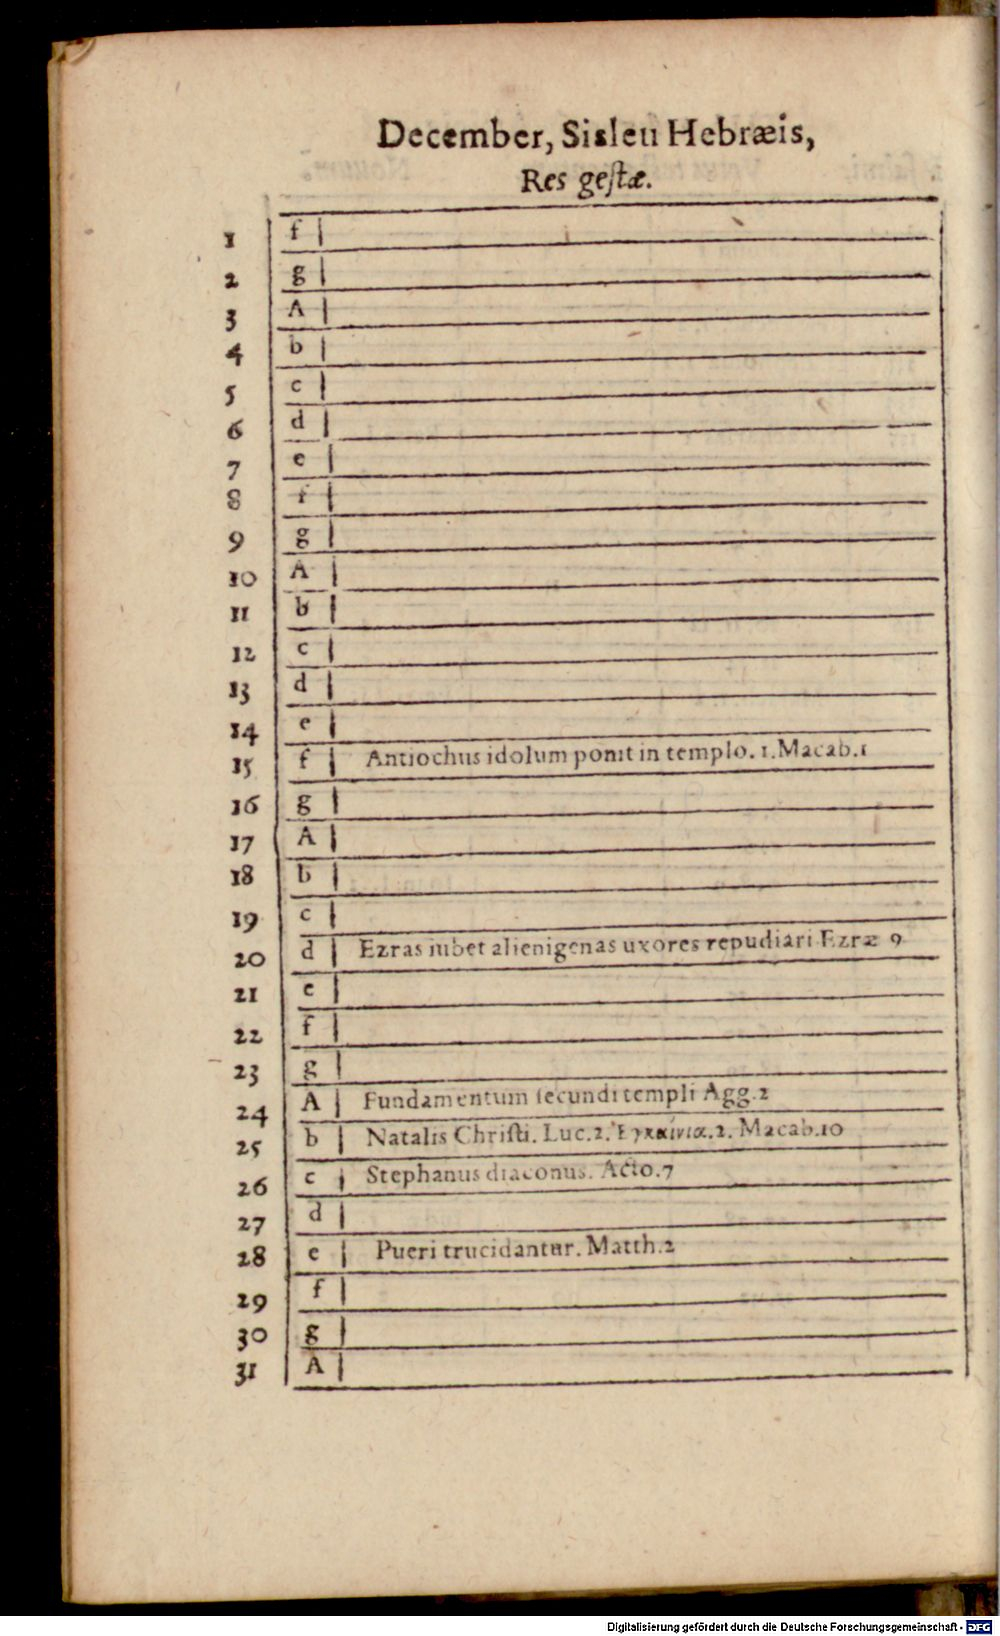 December, Sisleu Hebræis,
Res gestæ.
1 f
2 g
3 A
4 b
5 c
6 d
7 e
8 f
9 g
10 A
11 b
12 c
13 d
14 e
15 f Antiochus idolum ponit in templo. 1.Macab.1
16 g
17 A
18 b
19 c
20 d Ezras iubet alienigenas uxores repudiari Ezræ 9
21 e
22 f
23 g
24 A Fundamentum secundi templi Agg.2
25 b Natalis Christi. Luc.2. Ἐγκαίνια.2. Macab.10
26 c Stephanus diaconus. Acto.7
27 d
28 e Pueri trucidantur. Matth.2
29 f
30 g
31 A
Digitalisierung gefördert durch die Deutsche Forschungsgemeinschaft - DFG